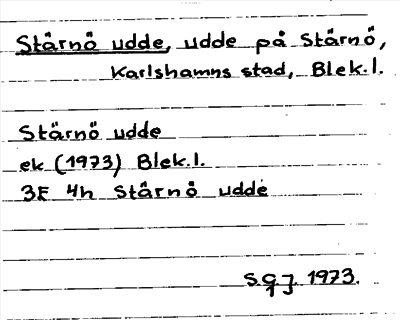 Stärnö udde, udde på Stärnö,
Karlshamns stad, Blek.l.
Stärnö udde
ek (1973) Blek.l.
3E 4h Stärnö udde
SGJ 1973.